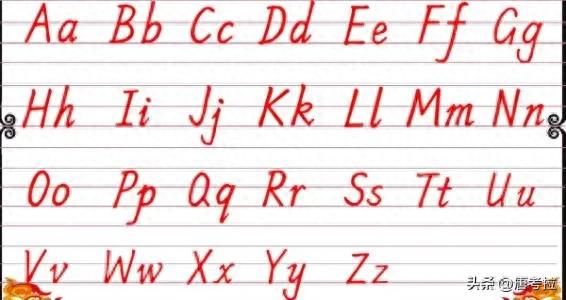 Aa Bb Cc Dd Ee Ff Gg
Hh Ii Jj Kk Ll Mm Nn
Oo Pp Qq Rr Ss Tt Uu
Vv Ww Xx Yy Zz
头条 @唐考拉